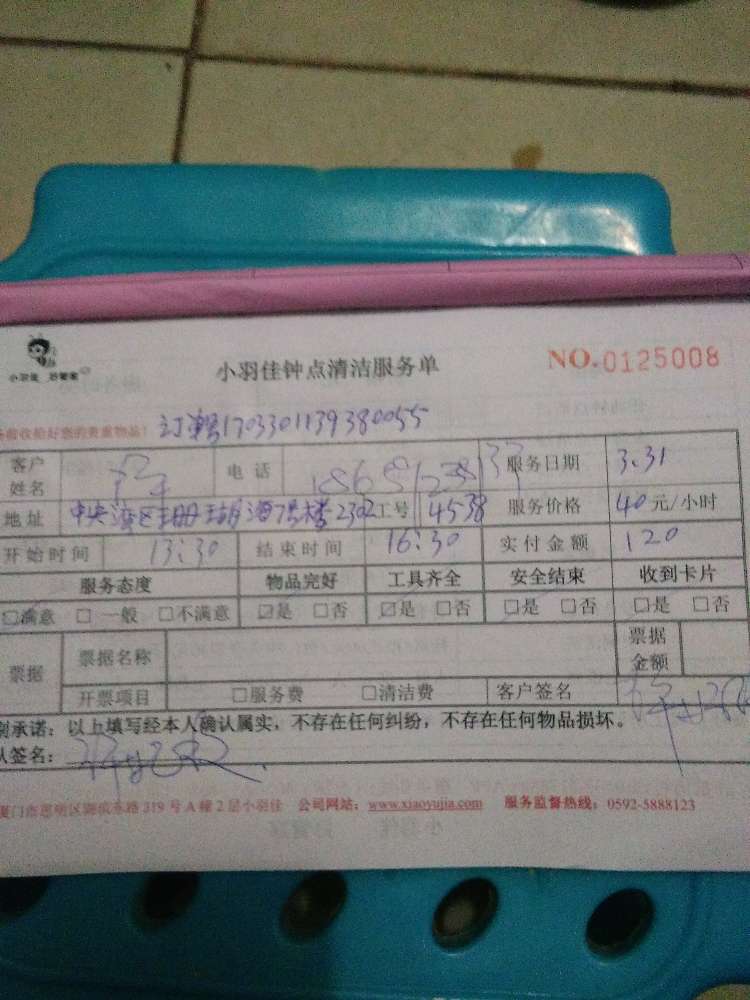 小羽佳 妙管家
小羽佳钟点清洁服务单
NO.0125008
验收拾好您的贵重物品!
订单号1703301139380055
客户姓名 电话 服务日期 3.31
地址 中央湾区 7号楼2302 工号 4538 服务价格 40元/小时
开始时间 13:30 结束时间 16:30 实付金额 120
服务态度 物品完好 工具齐全 安全结束 收到卡片
☐满意 ☐一般 ☐不满意 ☑是 ☐否 ☑是 ☐否 ☐是 ☐否 ☐是 ☐否
票据 票据名称 票据金额
开票项目 ☐服务费 ☐清洁费 客户签名
承诺:以上填写经本人确认属实,不存在任何纠纷,不存在任何物品损坏。
签名:
厦门市思明区湖滨东路319号A幢2层小羽佳 公司网站:www.xiaoyujia.com 服务监督热线:0592-5888123